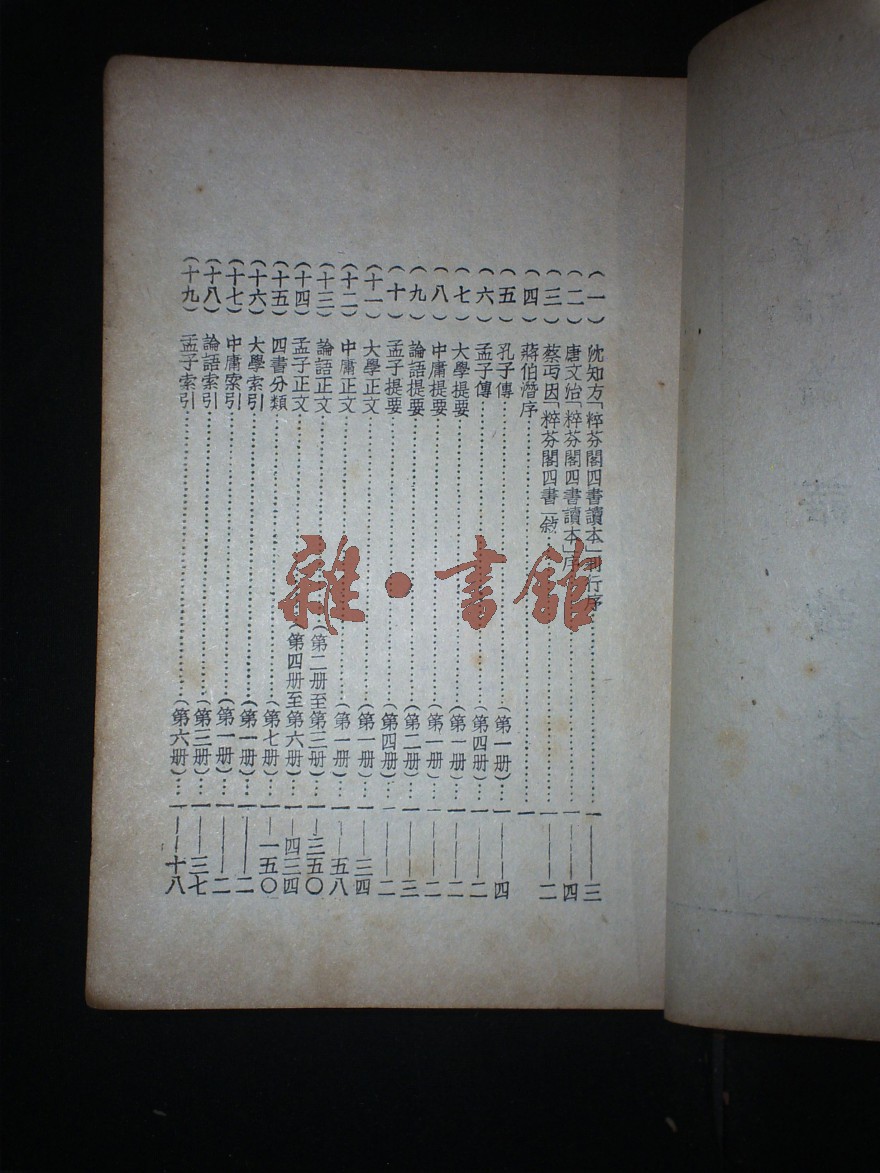 (一) 沈知方「粹芬閣四書讀本」刊行序……一——三
(二) 唐文治「粹芬閣四書讀本」序……一——四
(三) 蔡丏因「粹芬閣四書」敘……一——二
(四) 蔣伯潛序……一
(五) 孔子傳……(第一册)……一——四
(六) 孟子傳……(第四册)……一——二
(七) 大學提要……(第一册)……一——二
(八) 中庸提要……(第一册)……一——二
(九) 論語提要……(第二册)……一——三
(十) 孟子提要……(第四册)……一——二
(十一) 大學正文……(第一册)……一——三四
(十二) 中庸正文……(第一册)……一——五八
(十三) 論語正文……(第二册至第三册)……一——三五〇
(十四) 孟子正文……(第四册至第六册)……一——四三四
(十五) 四書分類……(第七册)……一——一五〇
(十六) 大學索引……(第一册)……一——二
(十七) 中庸索引……(第一册)……一——二
(十八) 論語索引……(第三册)……一——三七
(十九) 孟子索引……(第六册)……一——十八
雜·書館